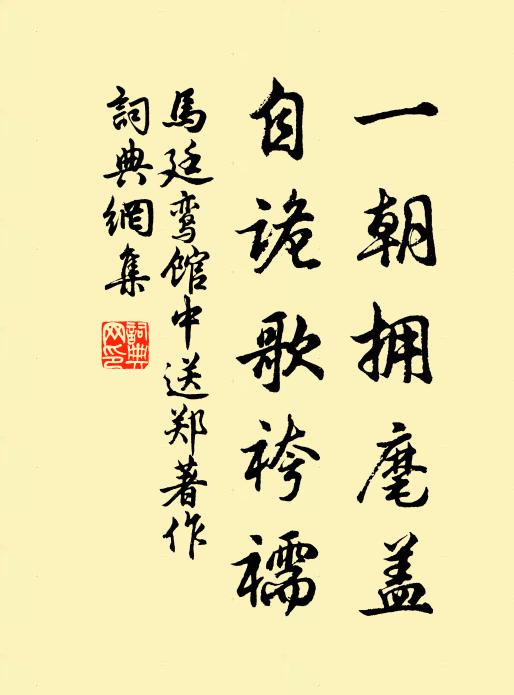 一朝拥麾盖
自诡歌袴襦
馬廷鸾馆中送郑著作
詞典網集
詞典網印